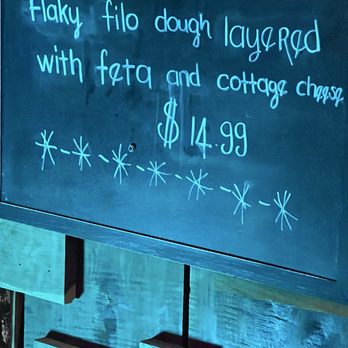 Flaky filo dough layered
with feta and cottage cheese
$ 14.99